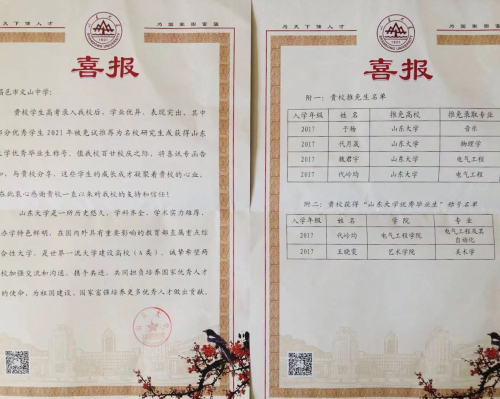 为天下储人才
为国家图富强
喜报
昌邑市文山中学:
贵校学生高考录入我校后,学业优异、表现突出,其中
部分优秀学生2021年被免试推荐为名校研究生或获得山东
大学优秀毕业生称号。值我校百廿校庆之际,将喜讯专函告
知,与贵校分享,这些学生的成长成才凝聚着贵校的心血,
在此衷心感谢贵校一直以来对我校的支持和信任!
山东大学是一所历史悠久、学科齐全、学术实力雄厚、
办学特色鲜明,在国内外具有重要影响的教育部直属重点综
合性大学,是世界一流大学建设高校(A类)。诚挚希望两
校加强交流和沟通,携手共进,共同担负培养国家优秀人才
的使命,为祖国建设、国家富强培养更多优秀人才做出贡献。
为天下储人才
为国家图富强
1901
喜报
附一:贵校推免生名单
入学年级 姓名 推免高校 推免录取专业
2017 于杨 山东大学 音乐
2017 代月晟 山东大学 物理学
2017 魏君宇 山东大学 电气工程
2017 代岭均 山东大学 电气工程
附二:贵校获得“山东大学优秀毕业生”称号名单
入学年级 姓名 学院 专业
2017 代岭均 电气工程学院 电气工程及其
自动化
2017 王晓雯 艺术学院 美术学